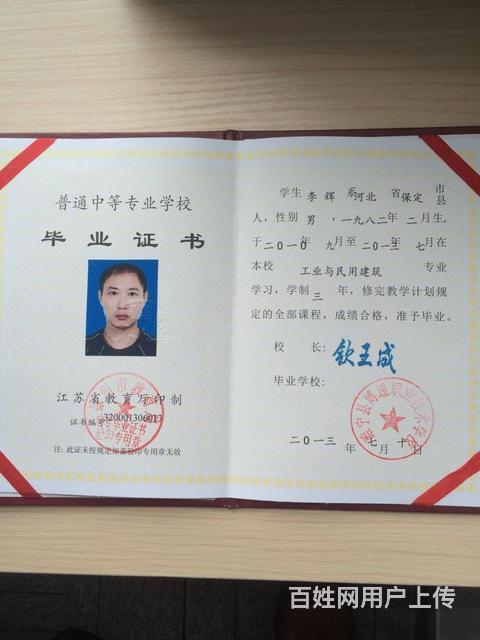 普通中等专业学校
毕业证书
江苏省教育厅印制
证书编号 320001306013
注：此证未按规定加盖验印专用章无效
学生 李辉 系河北 省保定 市县
人，性别 男 ，一九八二年 二月生，
于二〇一〇年 九月至 二〇一三年 七月在
本校 工业与民用建筑 专业
学习，学制 三 年，修完教学计划规
定的全部课程，成绩合格，准予毕业。
校 长：
毕业学校：
睢宁县博通职业技术学校
二〇一三 年 七 月 十 日
百姓网用户上传